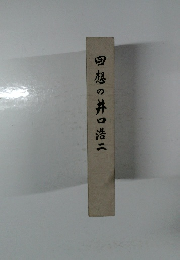 回想の井口浩二